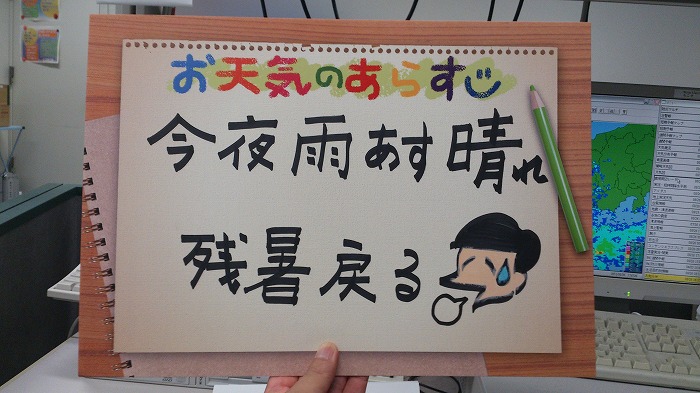 お天気のあらすじ
今夜雨あす晴れ
残暑戻る